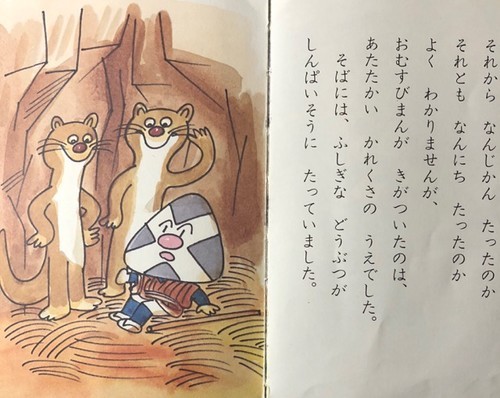 それから　なんじかん　たったのか
それとも　なんにち　たったのか
よく　わかりませんが、
おむすびまんが　きがついたのは、
あたたかい　かれくさの　うえでした。
そばには、ふしぎな　どうぶつが
しんぱいそうに　たっていました。